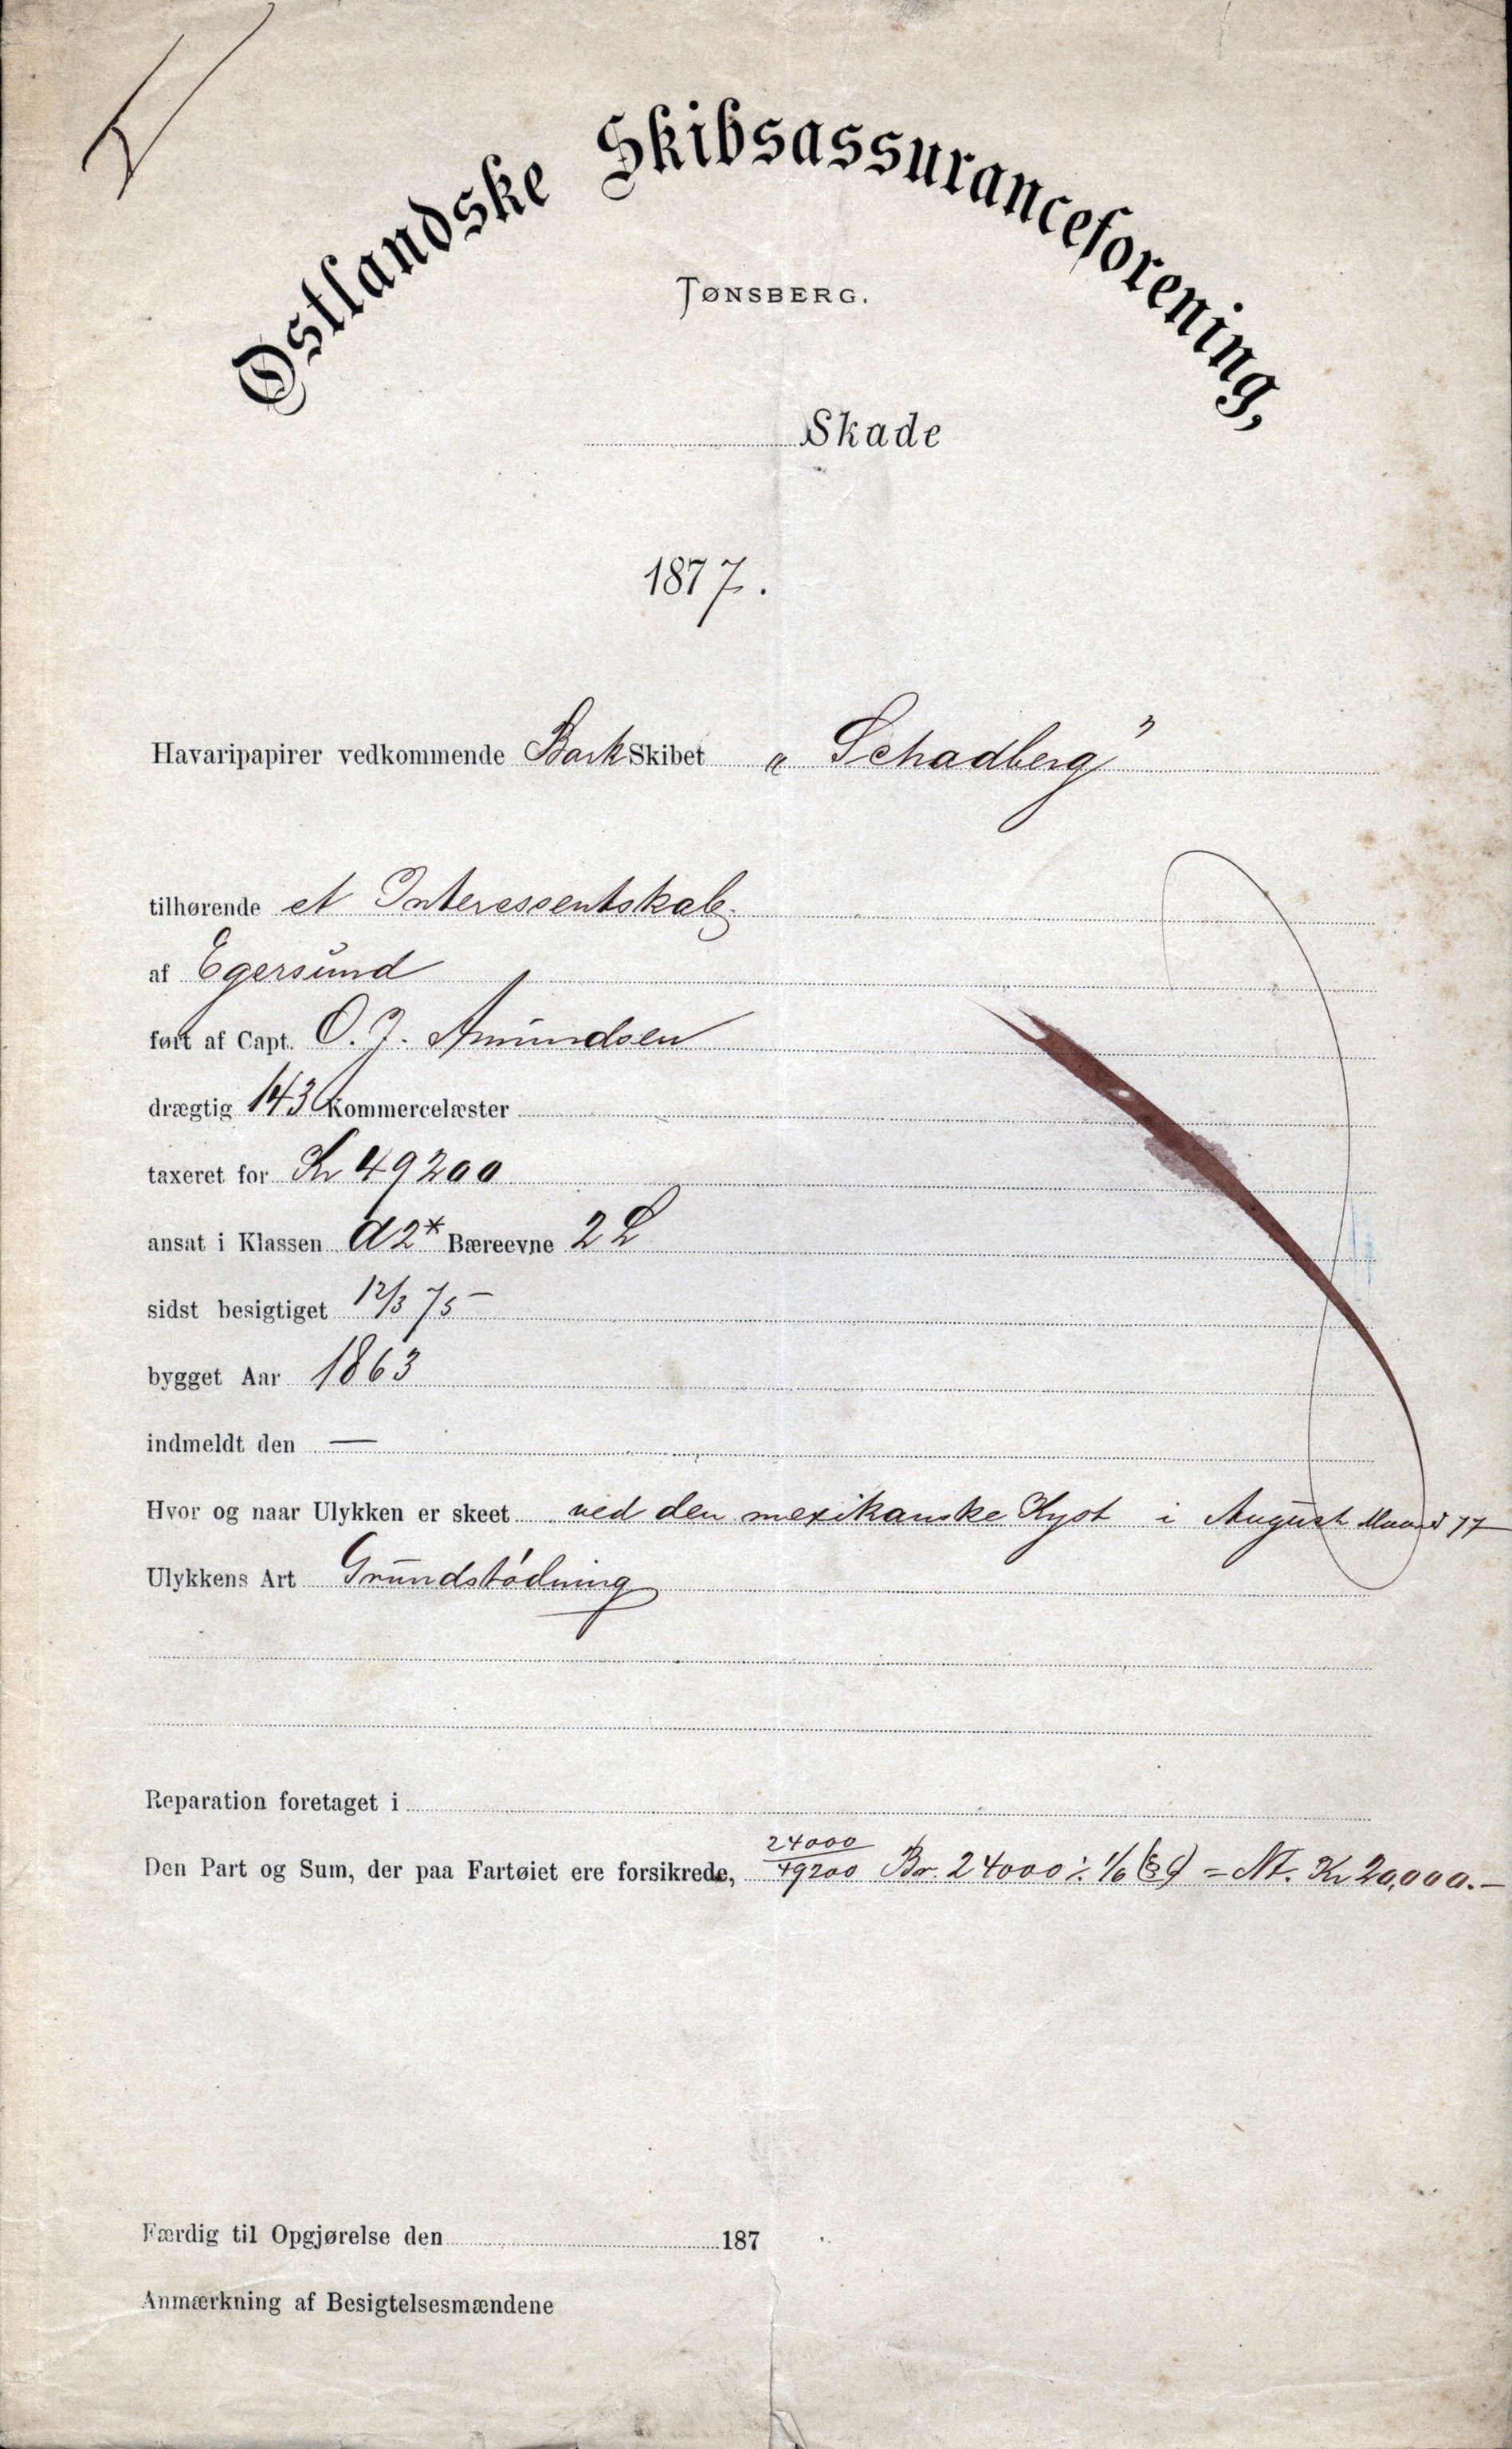 Østlandske Skibsassuranceforening,
TØNSBERG.
Skade
1877.
Havaripapirer vedkommende Bark Skibet „Schadberg”
tilhørende et Interessentskab.
af Egersund
ført af Capt. O. J. Amundsen
drægtig 143 Kommercelæster
taxeret for Kr 49200
ansat i Klassen A2* Bæreevne 2 L
sidst besigtiget 12/3 75
bygget Aar 1863
indmeldt den —
Hvor og naar Ulykken er skeet ved den mexikanske Kyst i August Maaned 77
Ulykkens Art Grundstödning
Reparation foretaget i
Den Part og Sum, der paa Fartøiet ere forsikrede, 24000/49200 Br. 24000 ÷ 1/6 = Nt. Kr 20,000.—
Færdig til Opgjørelse den 187
Anmærkning af Besigtelsesmændene